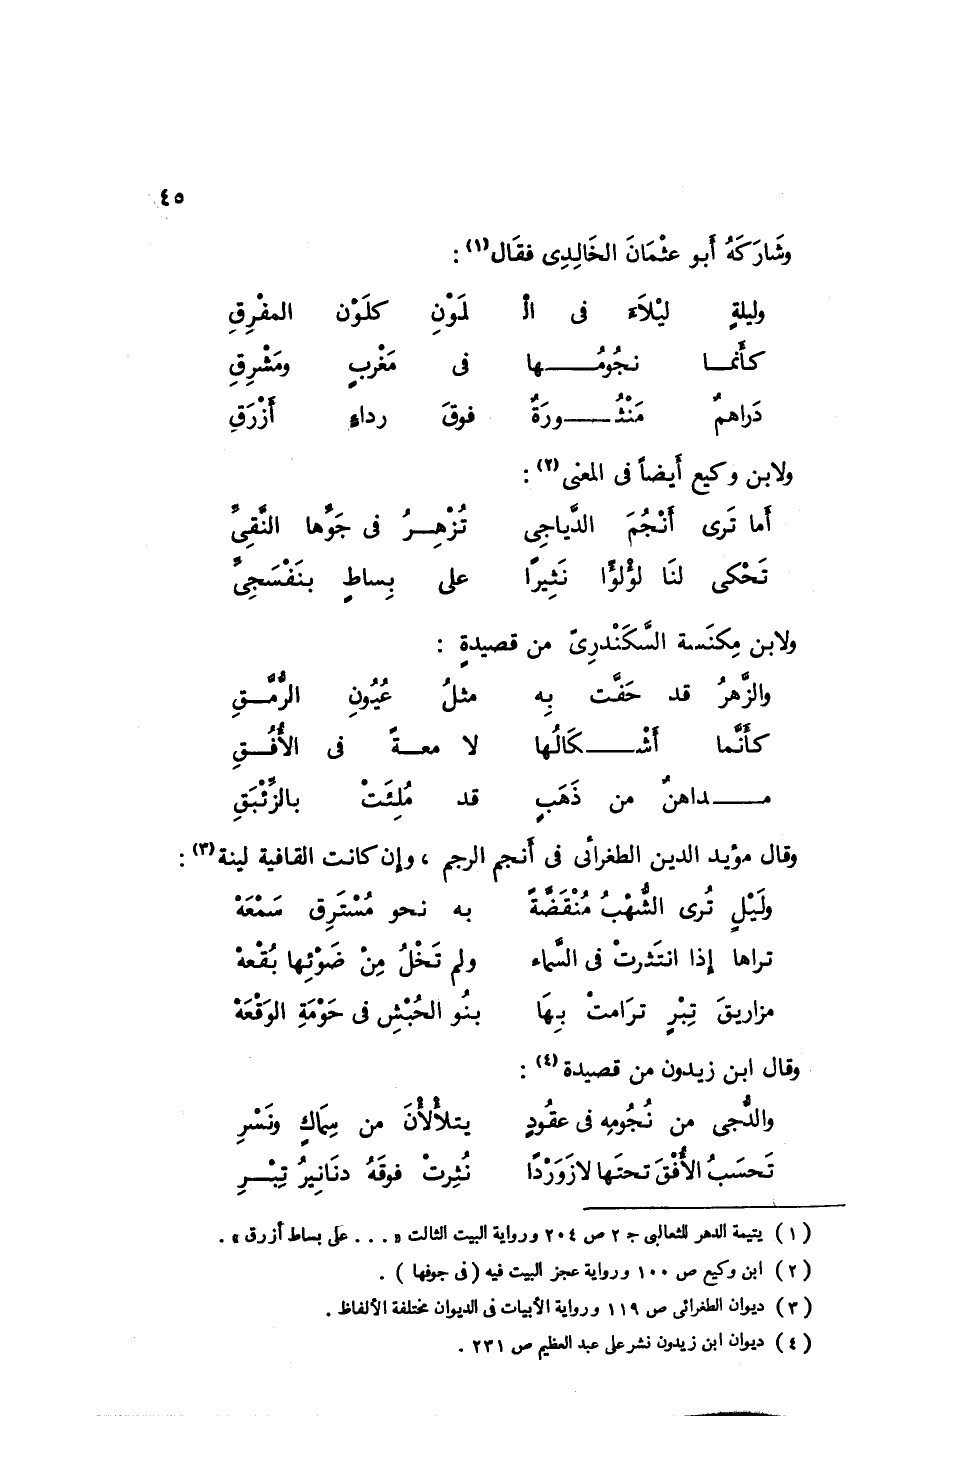 ٤٥
وشَارَكَهُ أَبو عثْمَانَ الخَالِدِى فقَال(١) :
وليلةٍ ليْلَاءَ فى الْ لَوْنِ كلَوْن المفْرِقِ
كأَنمـا نجُومُـــها فى مَغْربٍ ومَشْرِقِ
دَراهمٌ مَنْثُـــورَةٌ فوقَ رداءٍ أَزْرَقِ
ولابن وكيع أَيضاً فى المعنى(٢) :
أَما تَرى أَنْجُمَ الدَّياجِى تُزْهِــرُ فى جَوِّها النَّقِىِّ
تَحْكى لنَا لؤْلؤًا نَثِيرًا على بِساطٍ بنَفْسَجِىِّ
ولابن مِكنَسة السَّكَنْدرِىّ من قصيدةٍ :
والزَّهرُ قد حَفَّت بِه مثلُ عيُونِ الرُّمَّــقِ
كأَنَّما أَشْـــكَالُها لا معــةً فى الأُفُــقِ
مـــداهنٌ من ذَهَبٍ قد مُلِئَتْ بالزِّئْبَقِ
وقال مؤيد الدين الطغرائى فى أَنجم الرجم ، وإن كانت القافية لينة(٣) :
ولَيْلٍ تُرى الشُّهْبُ مُنْقَضَّةً به نحو مُسْتَرِق سَمْعَهْ
تراها إذا انتَثرتْ فى السَّماء ولم تَخْلُ مِنْ ضَوْئِها بُقْعهْ
مزاريقَ تِبْرٍ ترَامتْ بِهَا بنُو الحُبْشِ فى حَوْمَةِ الوَقْعَهْ
وقال ابن زيدون من قصيدة(٤) :
والدُّجى من نُجُومِه فى عقُودٍ يتلأْلأْنَ من سِماكٍ ونَسْرِ
تَحسَبُ الأُفْقَ تحتَها لازَوَرْدًا نُثِرتْ فوقَهُ دنَانِيرُ تِبْــرِ
(١) يتيمة الدهر للثعالبى ج ٢ ص ٢٠٤ ورواية البيت الثالث « . . . على بساط أزرق » .
(٢) ابن وكيع ص ١٠٠ ورواية عجز البيت فيه ( فى جوفها ) .
(٣) ديوان الطغرائى ص ١١٩ ورواية الأبيات فى الديوان مختلفة الألفاظ .
(٤) ديوان ابن زيدون نشر على عبد العظيم ص ٢٣١ .